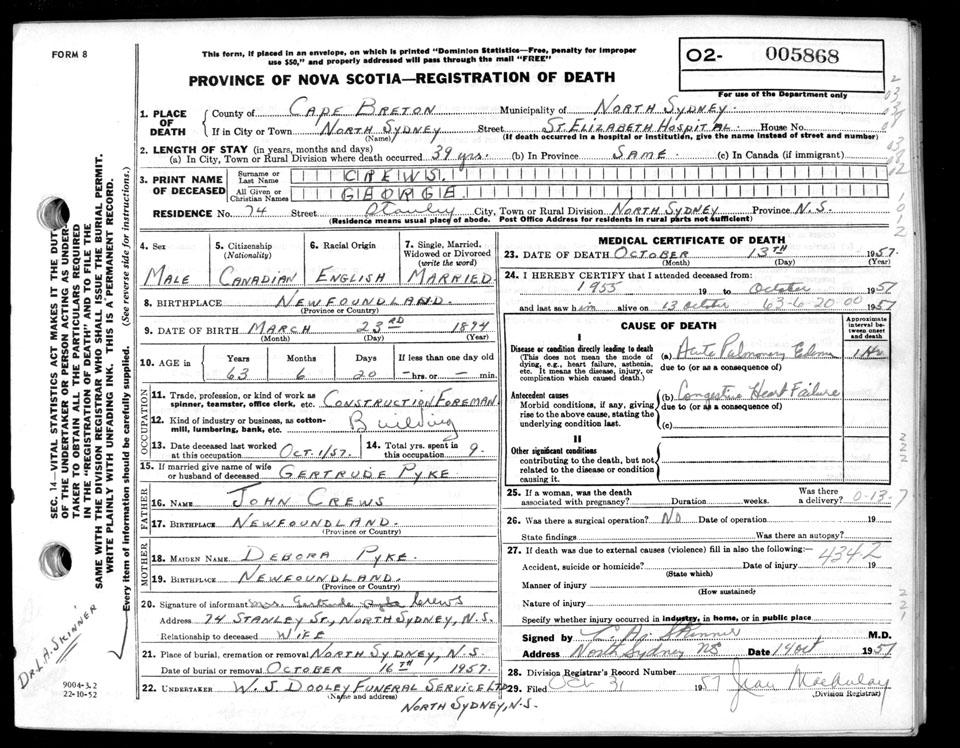 FORM 8
This form, if placed in an envelope, on which is printed "Dominion Statistics—Free, penalty for improper
use $50," and properly addressed will pass through the mail "FREE"
O2- 005868
For use of the Department only
PROVINCE OF NOVA SCOTIA—REGISTRATION OF DEATH
1. PLACE OF DEATH
County of CAPE BRETON Municipality of NORTH SYDNEY.
If in City or Town NORTH SYDNEY Street ST. ELIZABETH HOSPITAL House No.
(Name) (If death occurred in a hospital or institution, give the name instead of street and number)
2. LENGTH OF STAY (in years, months and days)
(a) In City, Town or Rural Division where death occurred 39 yrs. (b) In Province SAME. (c) In Canada (if immigrant)
3. PRINT NAME OF DECEASED
Surname or Last Name CREWS.
All Given or Christian Names GEORGE.
RESIDENCE No. 74 Street City, Town or Rural Division NORTH SYDNEY Province N.S.
(Residence means usual place of abode. Post Office Address for residents in rural parts not sufficient)
4. Sex
MALE
5. Citizenship
(Nationality)
CANADIAN
6. Racial Origin
ENGLISH
7. Single, Married,
Widowed or Divorced
(write the word)
MARRIED
8. BIRTHPLACE NEWFOUNDLAND.
(Province or Country)
9. DATE OF BIRTH MARCH 23RD 1894
(Month) (Day) (Year)
10. AGE in
Years Months Days If less than one day old
63 6 20 — hrs. or — min.
OCCUPATION
11. Trade, profession, or kind of work as
spinner, teamster, office clerk, etc. CONSTRUCTION FOREMAN
12. Kind of industry or business, as cotton-
mill, lumbering, bank, etc. Building
13. Date deceased last worked
at this occupation OCT. 1/57.
14. Total yrs. spent in
this occupation 9.
15. If married give name of wife
or husband of deceased GERTRUDE PYKE
FATHER
16. NAME JOHN CREWS
17. BIRTHPLACE NEWFOUNDLAND.
(Province or Country)
MOTHER
18. MAIDEN NAME DEBORA PYKE.
19. BIRTHPLACE NEWFOUNDLAND.
(Province or Country)
20. Signature of informant Mrs. Gertrude Crews
Address 74 STANLEY ST., NORTH SYDNEY, N.S.
Relationship to deceased WIFE
21. Place of burial, cremation or removal NORTH SYDNEY, N.S.
Date of burial or removal OCTOBER 16TH 1957.
22. UNDERTAKER W. J. DOOLEY FUNERAL SERVICE LTD
(Name and address)
NORTH SYDNEY, N.S.
MEDICAL CERTIFICATE OF DEATH
23. DATE OF DEATH OCTOBER 13TH 1957.
(Month) (Day) (Year)
24. I HEREBY CERTIFY that I attended deceased from:
1955 19 to October 1957
and last saw him alive on 13 October 63-6-20 00 1957
CAUSE OF DEATH
Approximate interval between onset and death
I
Disease or condition directly leading to death
(This does not mean the mode of
dying, e.g., heart failure, asthenia,
etc. It means the disease, injury, or
complication which caused death.)
(a) Acute Pulmonary Edema 1 Hr
due to (or as a consequence of)
Antecedent causes
Morbid conditions, if any, giving
rise to the above cause, stating the
underlying condition last.
(b) Congestive Heart Failure
due to (or as a consequence of)
(c)
II
Other significant conditions
contributing to the death, but not
related to the disease or condition
causing it.
25. If a woman, was the death
associated with pregnancy? Duration weeks. Was there
a delivery? 0-13-7
26. Was there a surgical operation? No Date of operation 19
State findings Was there an autopsy?
27. If death was due to external causes (violence) fill in also the following:— 4342
Accident, suicide or homicide? Date of injury 19
(State which)
Manner of injury
(How sustained)
Nature of injury
Specify whether injury occurred in industry, in home, or in public place
Signed by Skinner M.D.
Address North Sydney NS Date 14 Oct 1957
28. Division Registrar's Record Number
29. Filed Oct 31 1957 Jean MacAulay
(Division Registrar)
SEC. 14—VITAL STATISTICS ACT MAKES IT THE DUTY
OF THE UNDERTAKER OR PERSON ACTING AS UNDER-
TAKER TO OBTAIN ALL THE PARTICULARS REQUIRED
IN THE "REGISTRATION OF DEATH" AND TO FILE THE
SAME WITH THE DIVISION REGISTRAR WHO SHALL ISSUE THE BURIAL PERMIT.
WRITE PLAINLY WITH UNFADING INK. THIS IS A PERMANENT RECORD.
Every item of information should be carefully supplied. (See reverse side for instructions.)
DR. L.A. SKINNER
9004-3.2
22-10-52